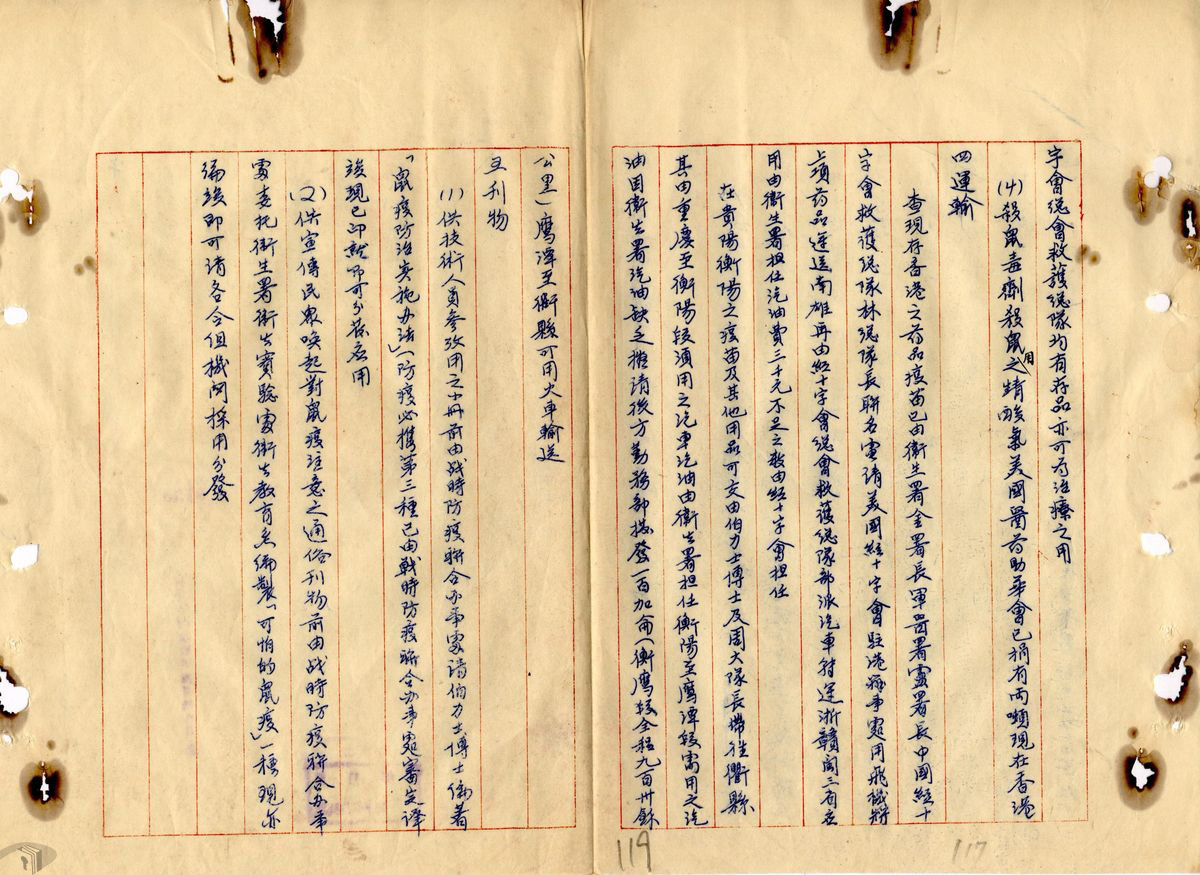 字會總會救護總隊均有存品亦可为治療之用
(4)殺鼠毒劑殺鼠用之蜻酸氣美國醫葯助華會已捐有兩噸現在香港
四運輸
查現存香港之药品疫苗已由衛生署金署長軍醫署盧署長中國紅十
字會救護總隊林總隊長聯名電請美國紅十字會駐港辦事處用飛機將
上項药品運送南雄再由紅十字會總會救護總隊部派汽車轉運浙贛閩三省应
用由衛生署担任汽油費三千元不足之数由紅十字會担任
在貴陽衡陽之疫苗及其他用品可交由伯力士博士及周大隊長帶往衢縣
其由重慶至衡陽段須用之汽車汽油由衛生署担任衡陽至鷹潭段需用之汽
油因衛生署汽油缺乏擬請後方勤務部撥發一百加侖(衡鷹段全程九百卅餘
公里)鷹潭至衢縣可用火車輸送
五刊物
(1)供技術人員參攷用之小冊前由战時防疫聯合办事處請伯力士博士编著
「鼠疫防治实施办法」(防疫必携第三種已由戰時防疫聯合办事處審定譯
竣現已印就即可分發应用
(2)供宣傳民衆喚起對鼠疫注意之通俗刊物前由战時防疫聯合办事
處委托衛生署衛生實驗處衛生教育系编製「可怕的鼠疫」一種現亦
编竣即可請各合组機関採用分發
119
117